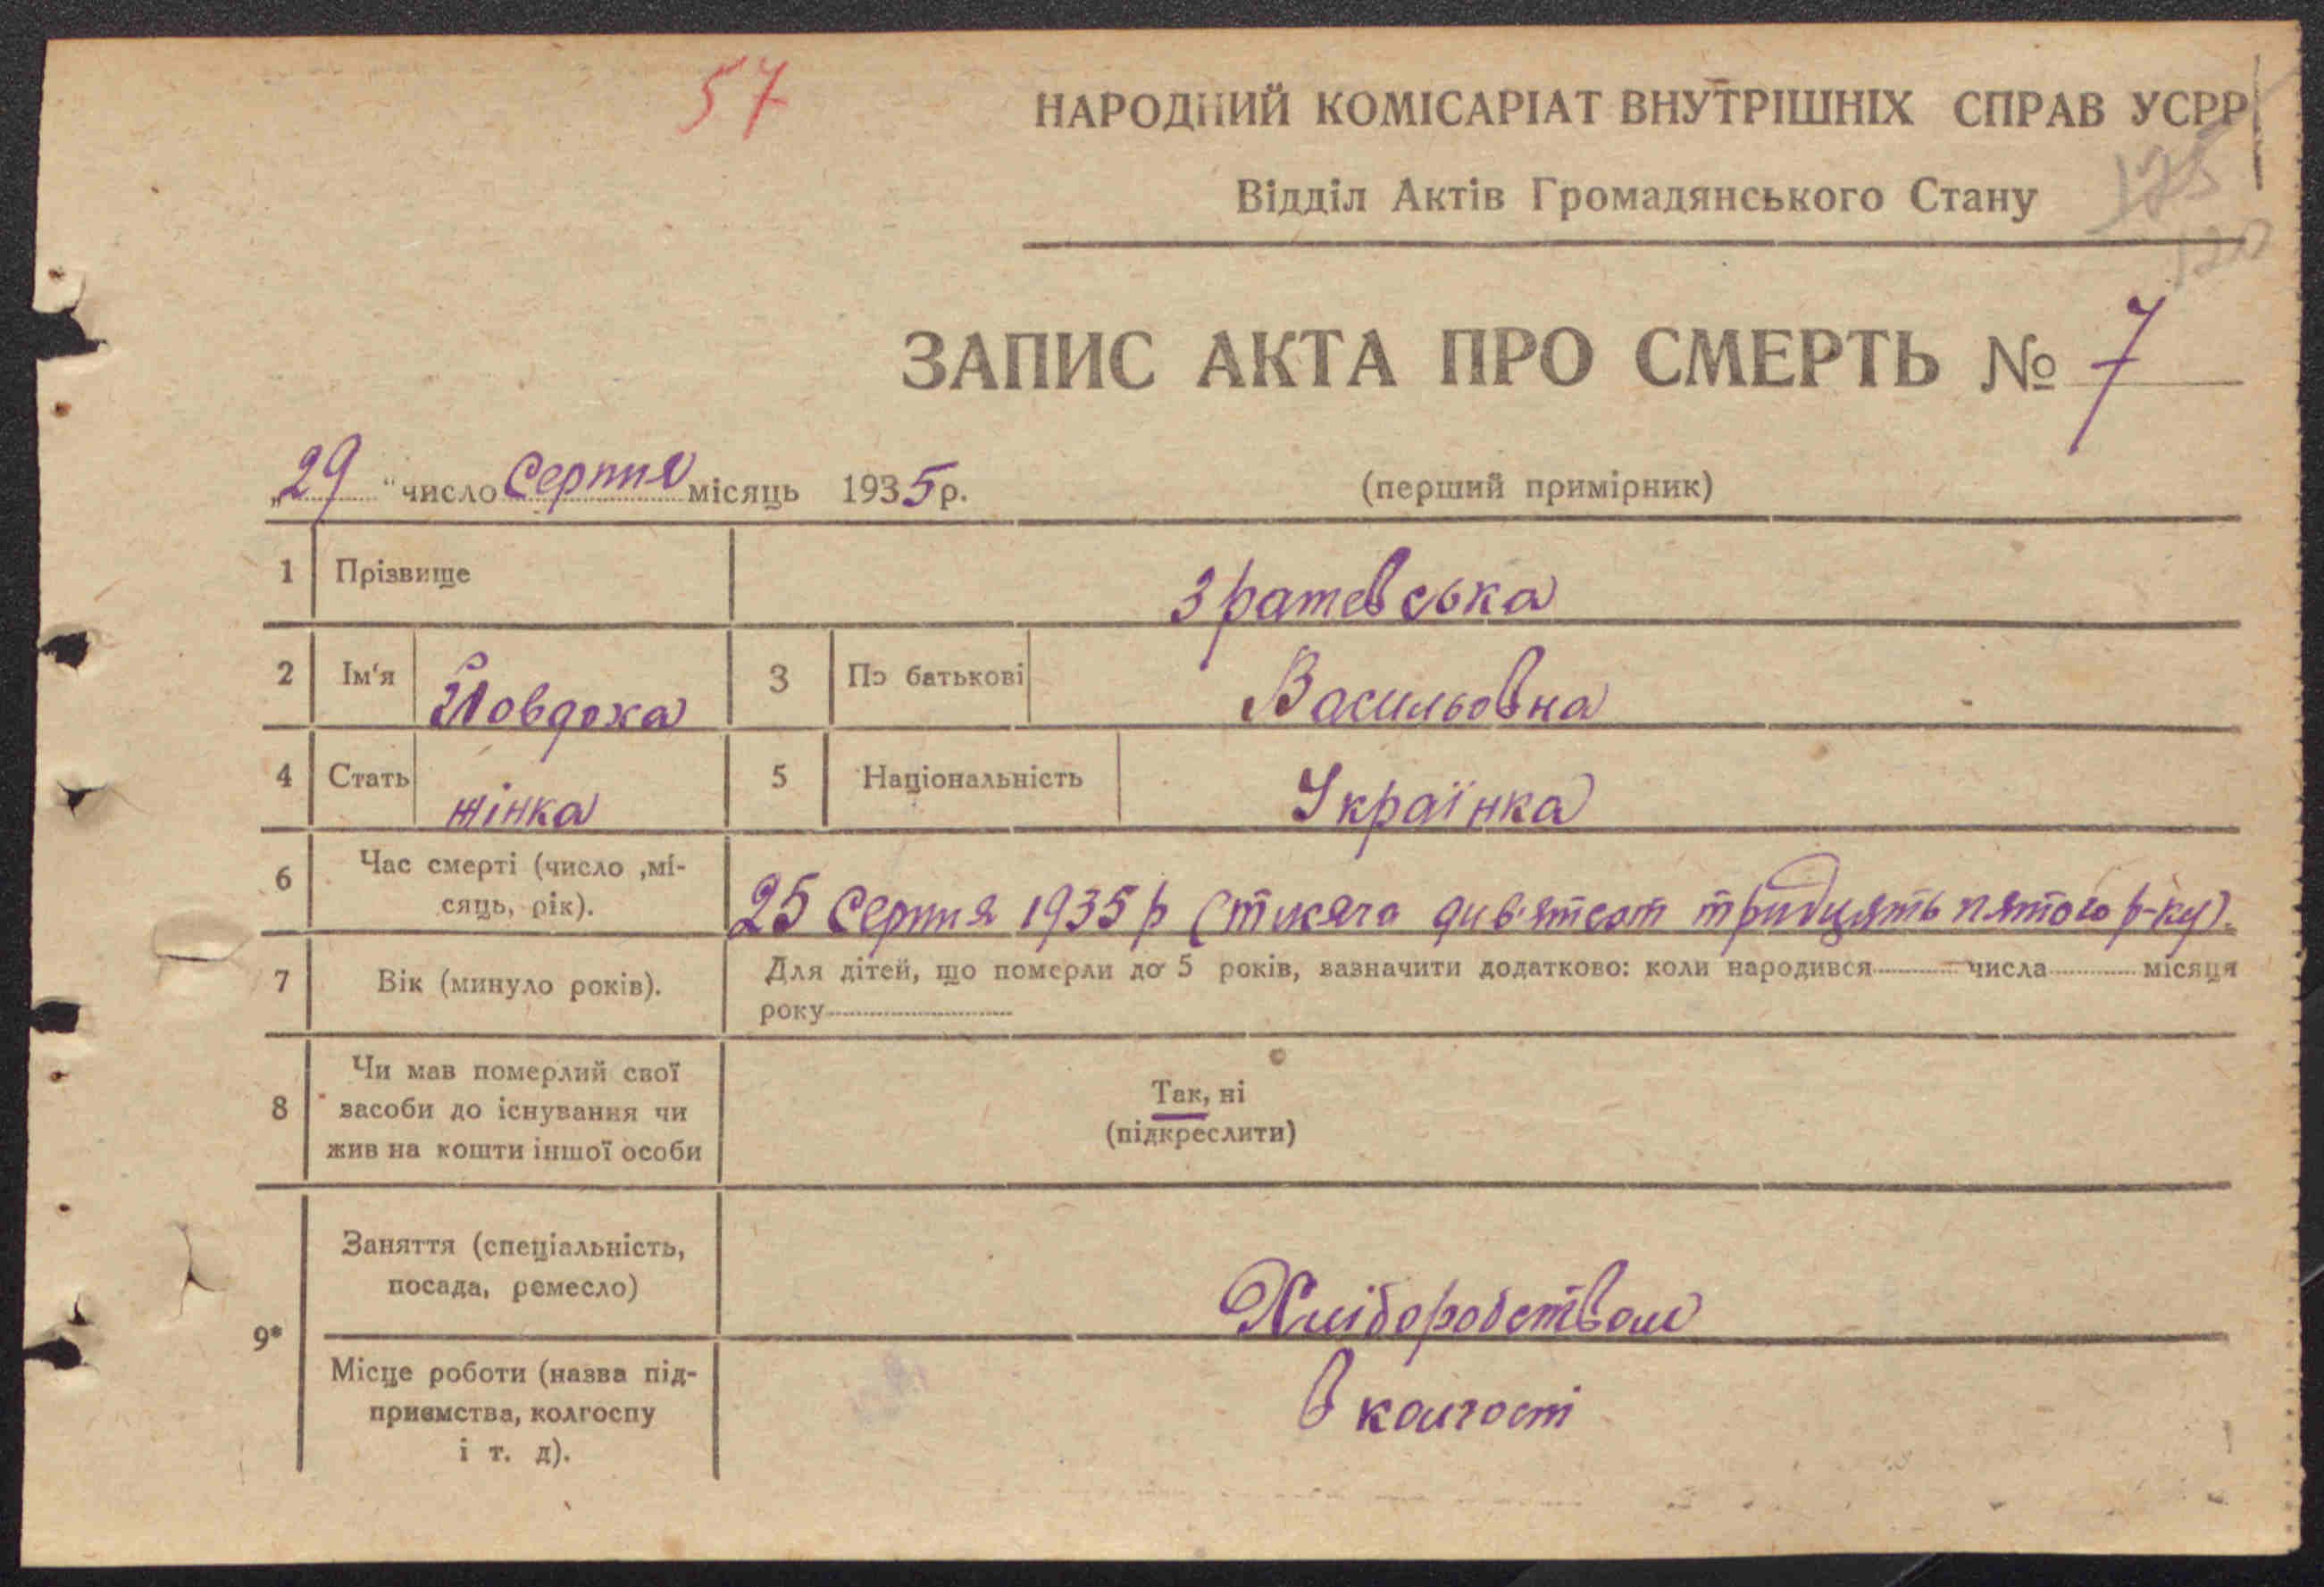 57
НАРОДНИЙ КОМІСАРІАТ ВНУТРІШНІХ СПРАВ УСРР
175
Відділ Актів Громадянського Стану
120
ЗАПИС АКТА ПРО СМЕРТЬ № 7
„29“ число Серпня місяць 1935 р.
(перший примірник)
1 Прізвище Зратевська
2 Ім'я Йовдоха 3 По батькові Васильовна
4 Стать жінка 5 Національність Українка
6 Час смерті (число ,мі-
сяць, рік). 25 Серпня 1935 р (тисяча дивятсот тридцять пятого р-ку).
7 Вік (минуло років). Для дітей, що померли до 5 років, зазначити додатково: коли народився числа місяця
року
8 Чи мав померлий свої
засоби до існування чи
жив на кошти іншої особи
Так, ні
(підкреслити)
9* Заняття (спеціальність,
посада, ремесло) Хліборобством
Місце роботи (назва під-
приємства, колгоспу
і т. д).
В колгості